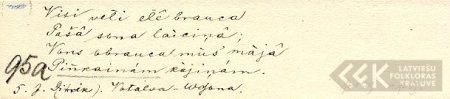 Visi veļi elē brauca
Pašā sona laiciņā;
Vens abrauca mūs' mājā
Piņkainām kājiņām.
95a
5. J. Vatalva-Wōzona.
LATVIEŠU
FOLKLORAS
KRĀTUVE